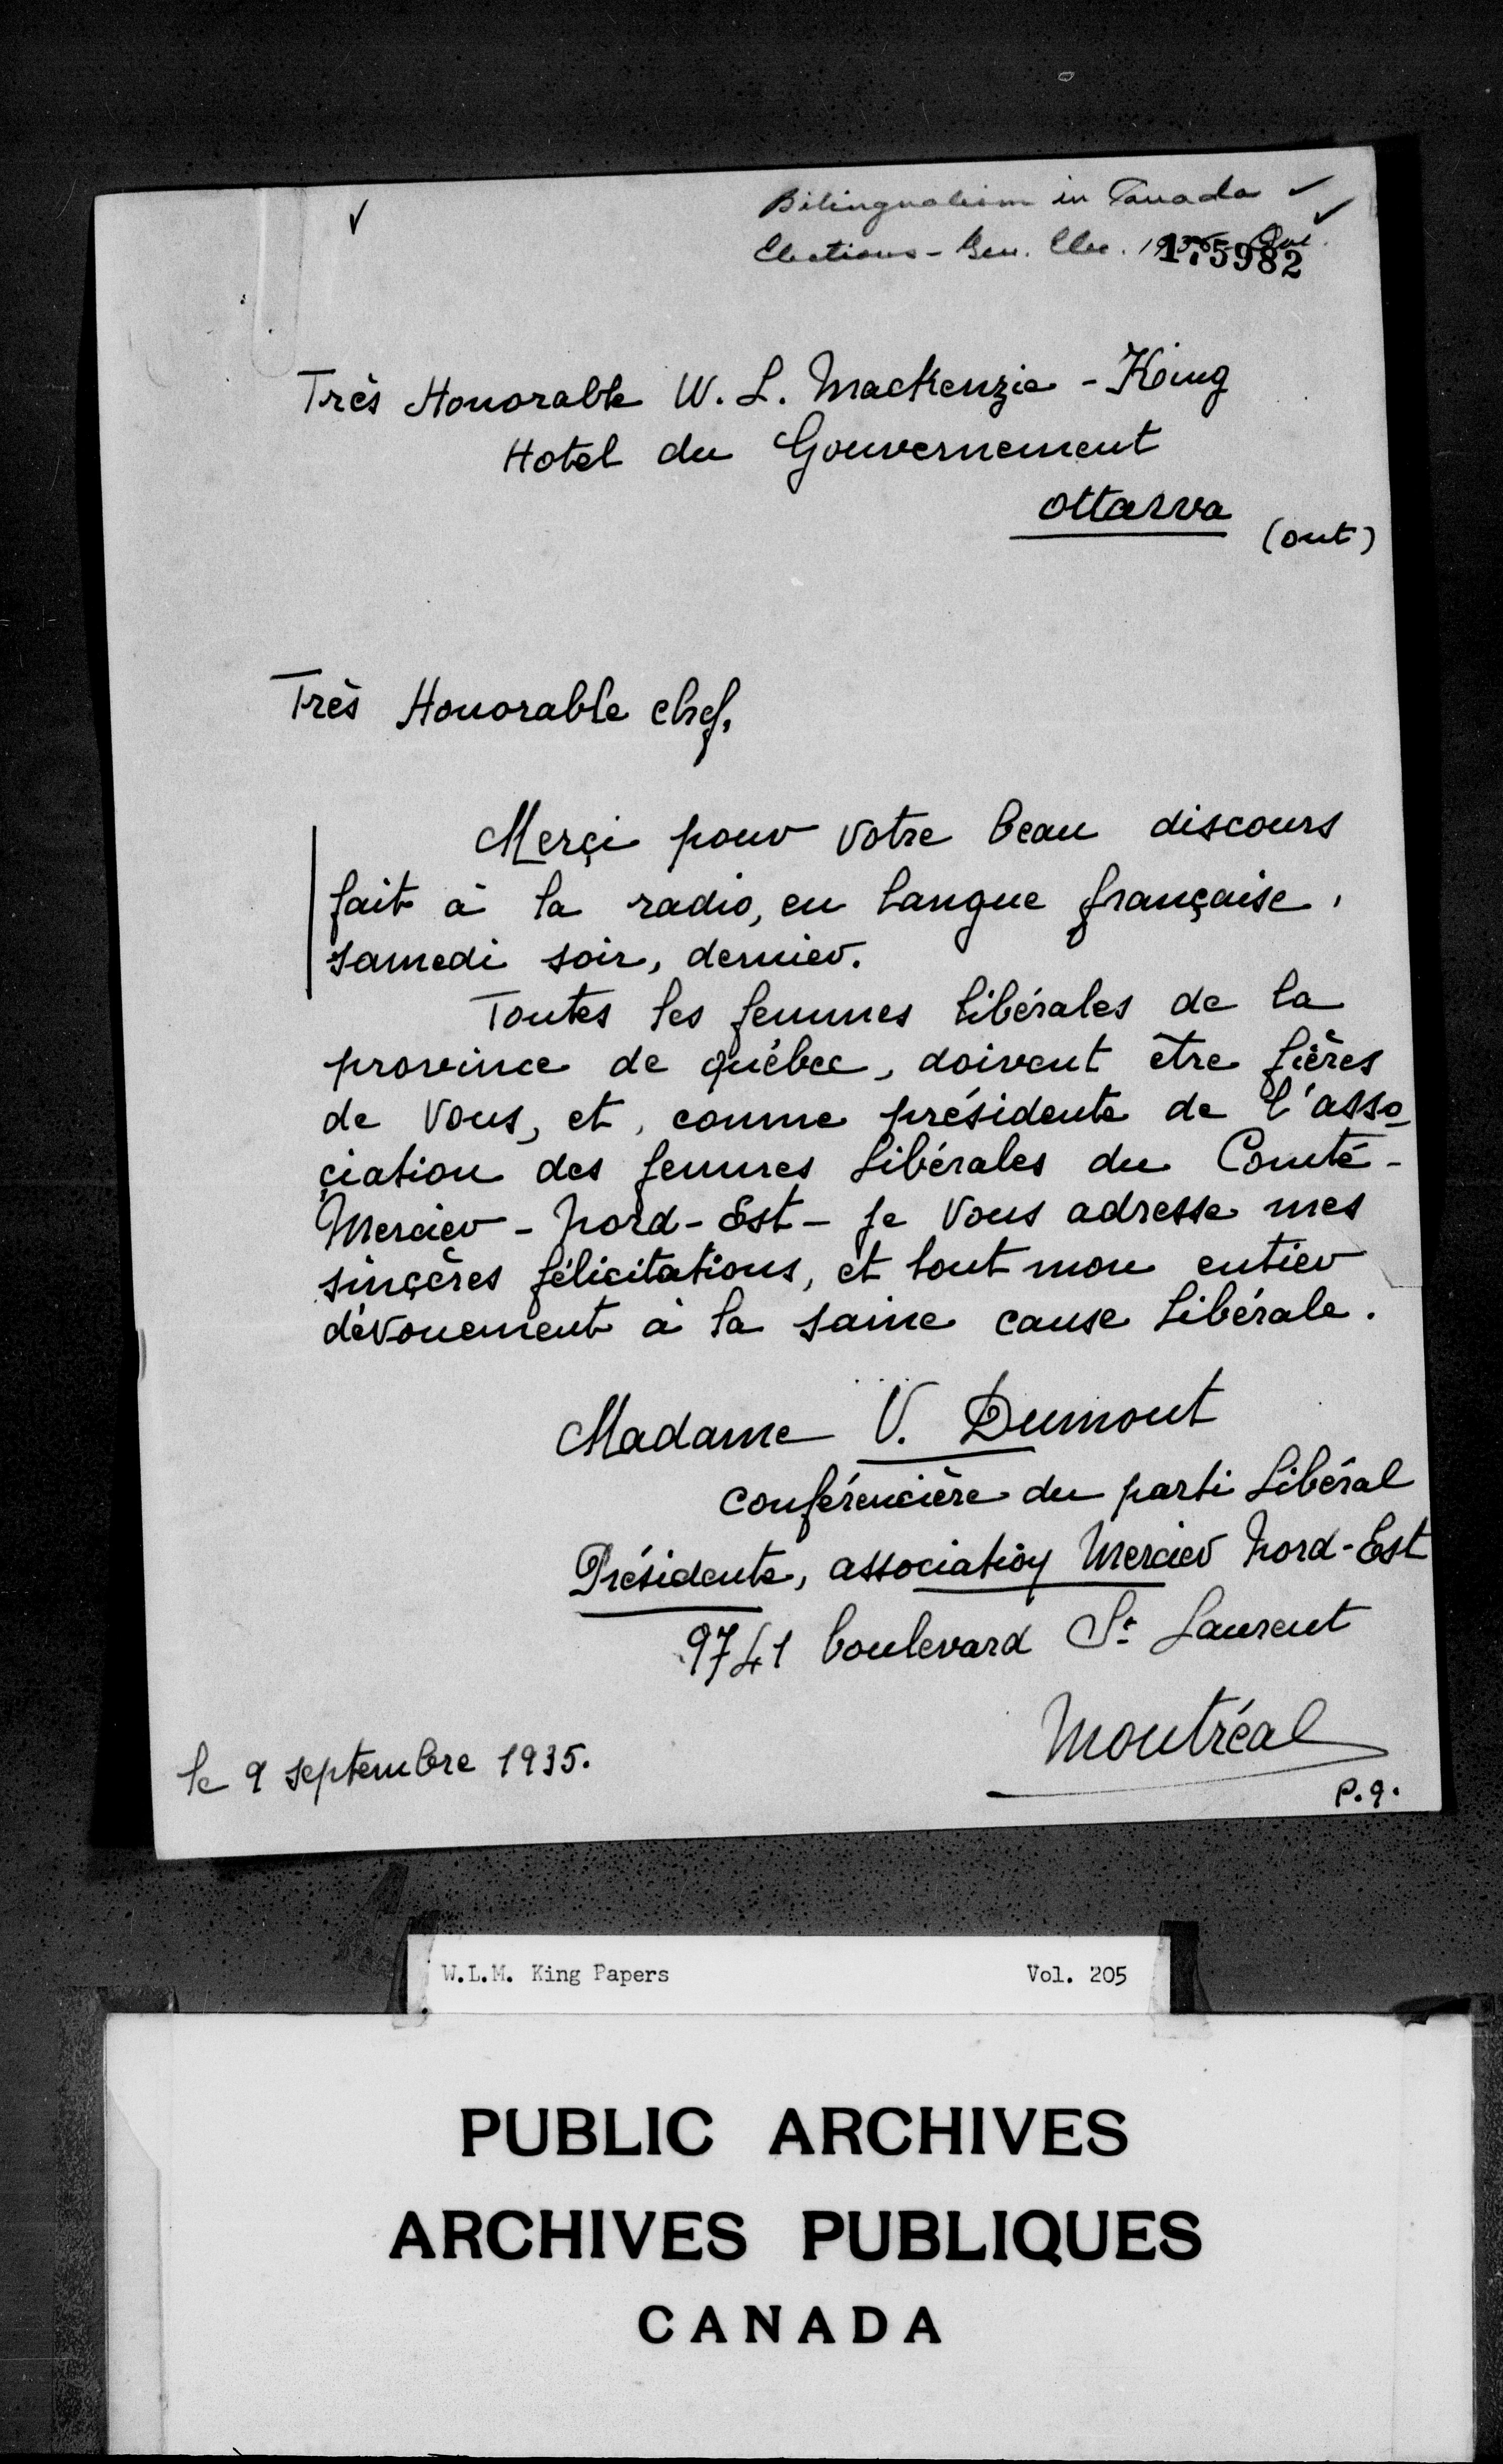 Bilingualism in Canada ✓
Elections - Gen. Elec. 1935 - Que.
175982
Très Honorable W. L. Mackenzie - King
Hotel du Gouvernement
Ottawa
(ont)
Très Honorable chef,
Merçi pour votre beau discours
fait à la radio, en langue française,
samedi soir, dernier.
Toutes les femmes libérales de la
province de québec, doivent être fières
de vous, et, comme présidente de l'asso-
çiation des femmes libérales du Comté -
Mercier - Nord - Est - je vous adresse mes
sinçères félicitations, et tout mon entier
dévouement à la saine cause libérale.
Madame V. Dumont
conférencière du parti Libéral
Présidente, association Mercier Nord-Est
9741 boulevard St Laurent
Montréal
P.q.
le 9 septembre 1935.
W.L.M. King Papers Vol. 205
PUBLIC ARCHIVES
ARCHIVES PUBLIQUES
CANADA